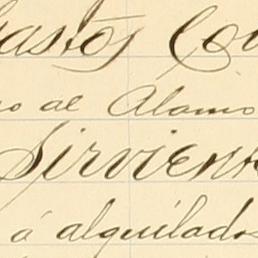 gastos Co
o al Alamo
Sirviente
á alquilados